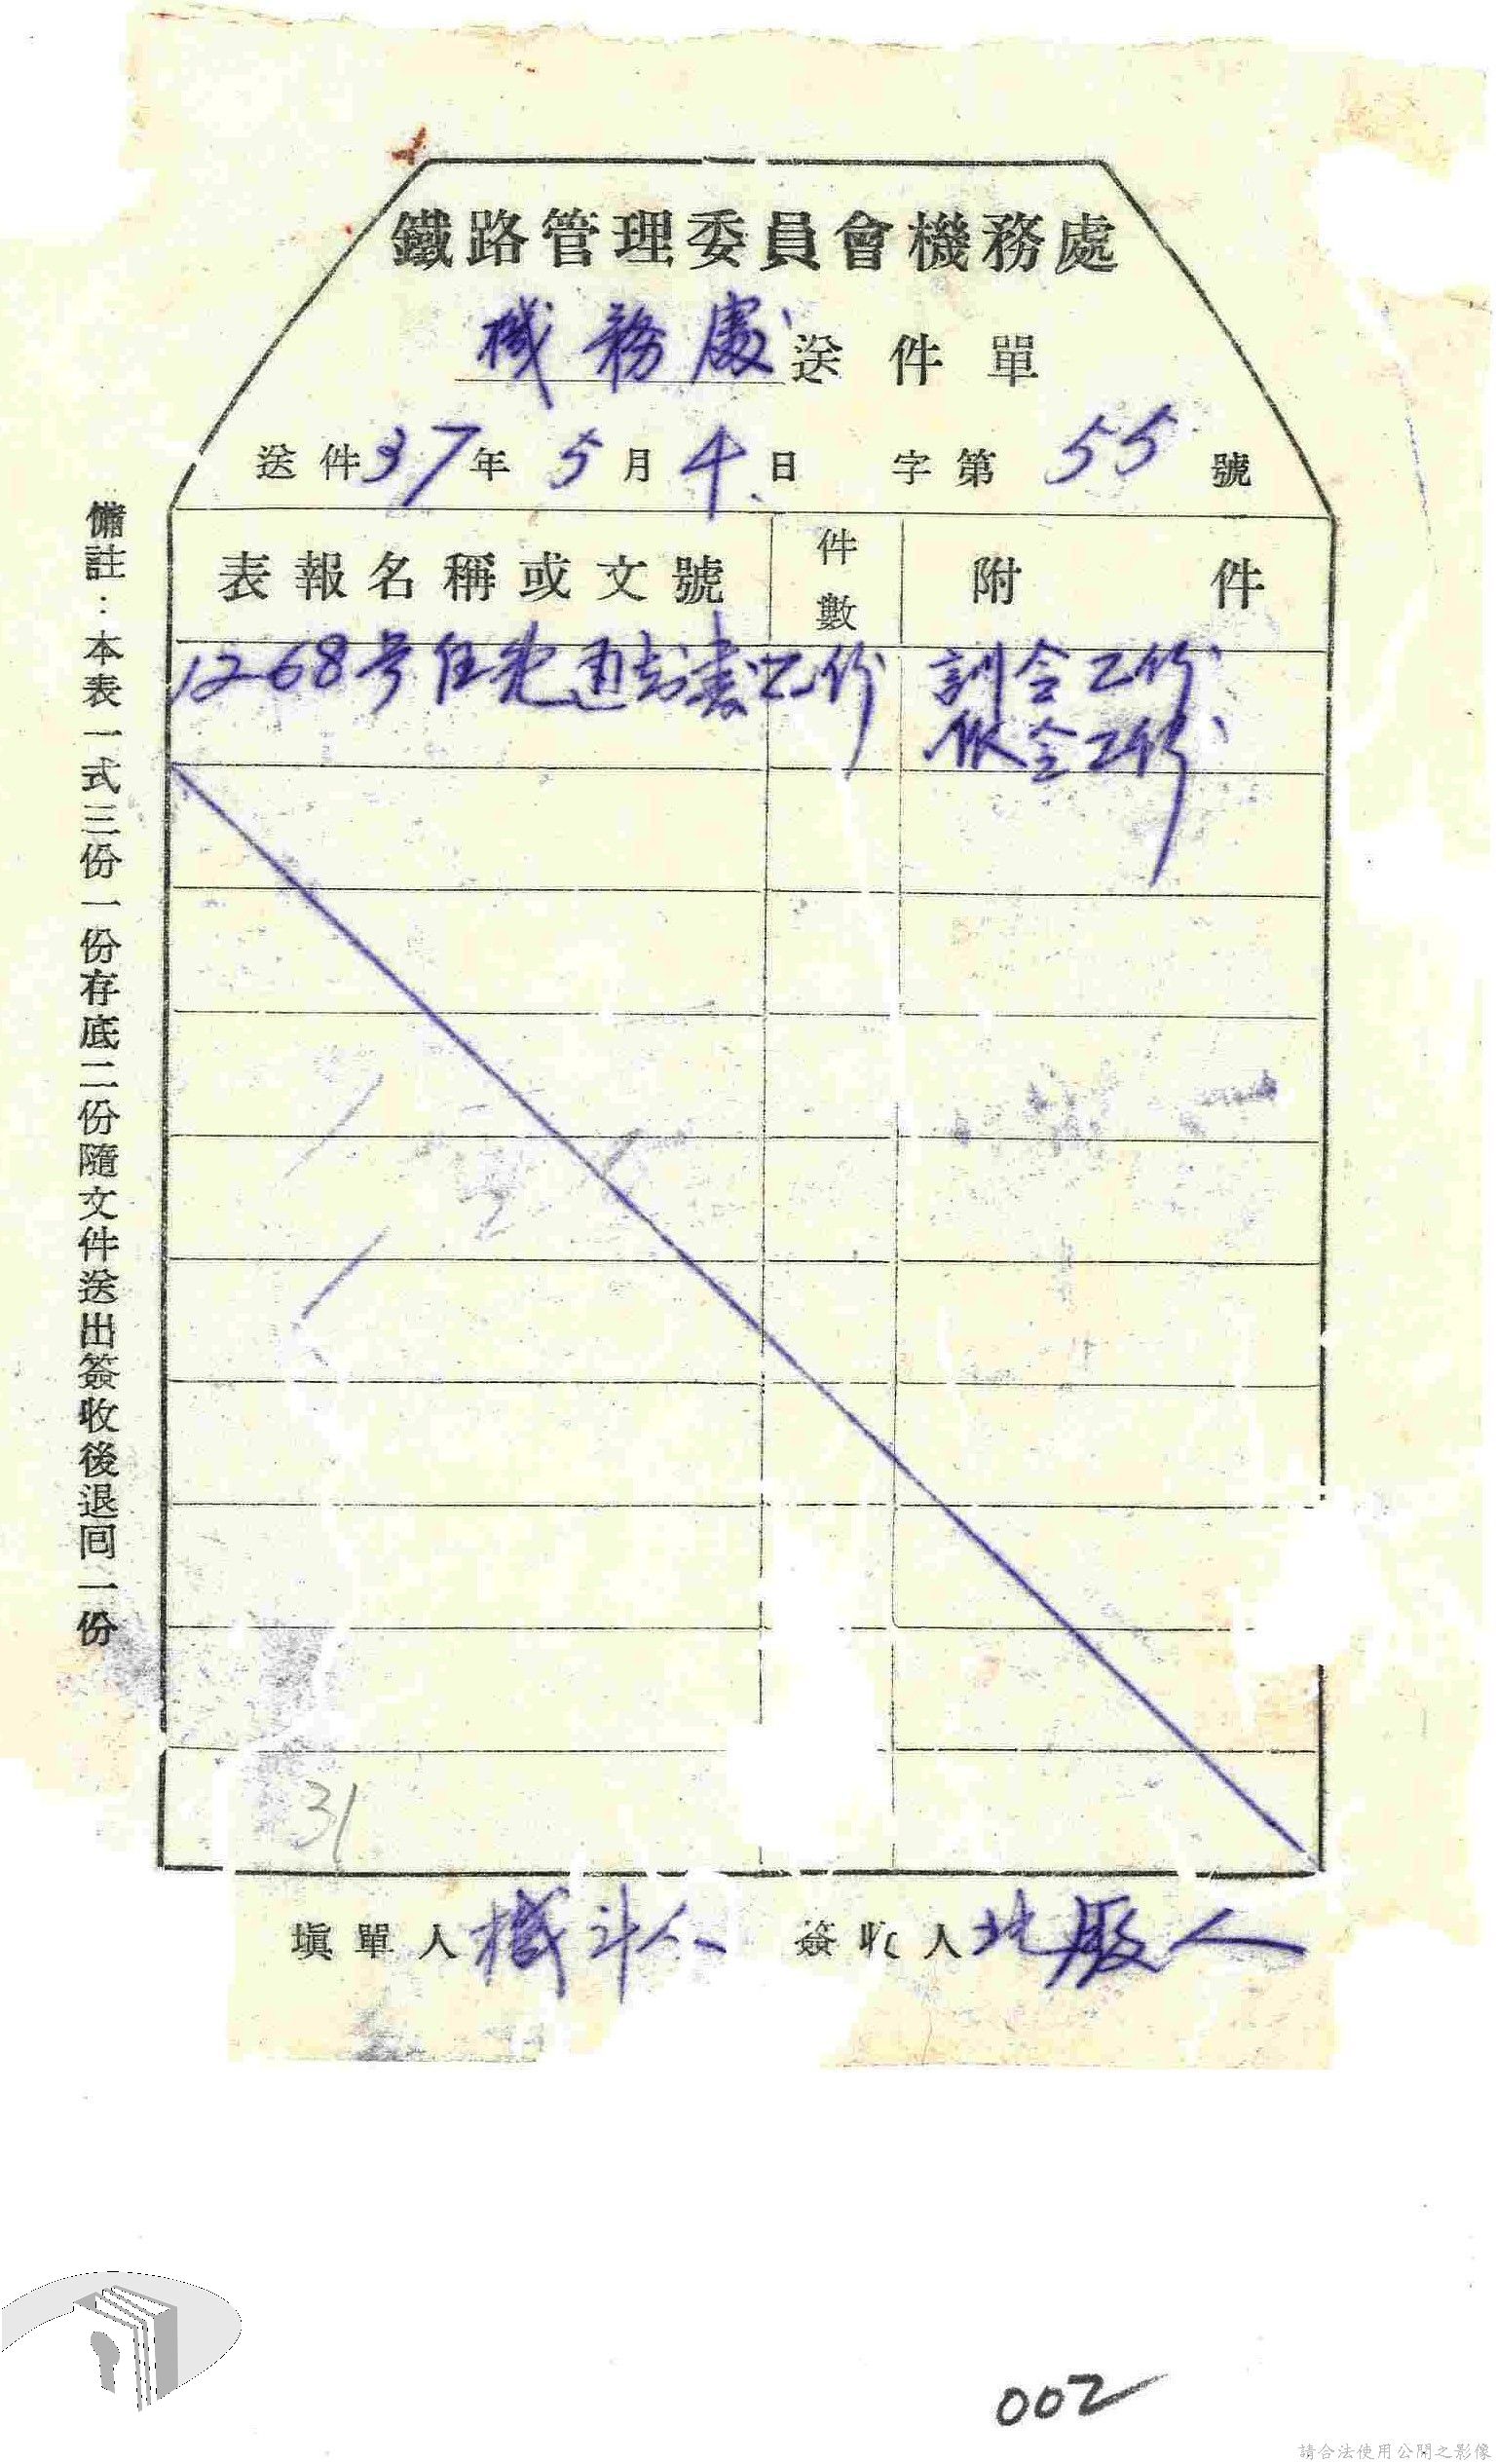 鐵路管理委員會機務處
機務處送件單
送件37年5月4日 字第55號
表報名稱或文號 件數 附件
1268号任免通知書乙份 訓令乙份
派令乙份
31
填單人 機計人 簽收人 北廠人
備註：本表一式三份一份存底二份隨文件送出簽收後退回一份
002
請合法使用公開之影像